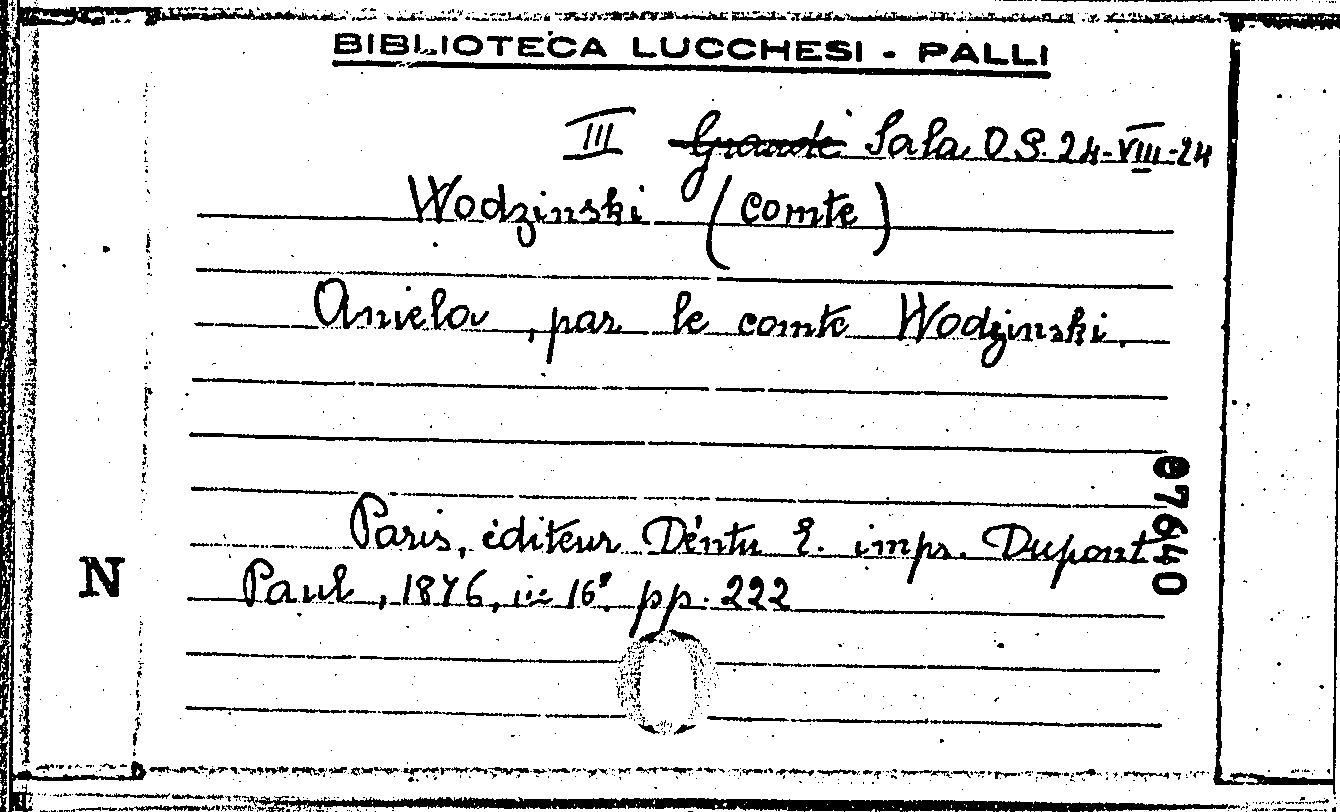 BIBLIOTECA LUCCHESI - PALLI
III Grande Sala O S. 24-VIII-24
Wodzinski (comte)
Aniela, par le comte Wodzinski.
Paris, éditeur Déntu E. imps. Dupont
Paul, 1876, in 16° pp. 222
07640
N